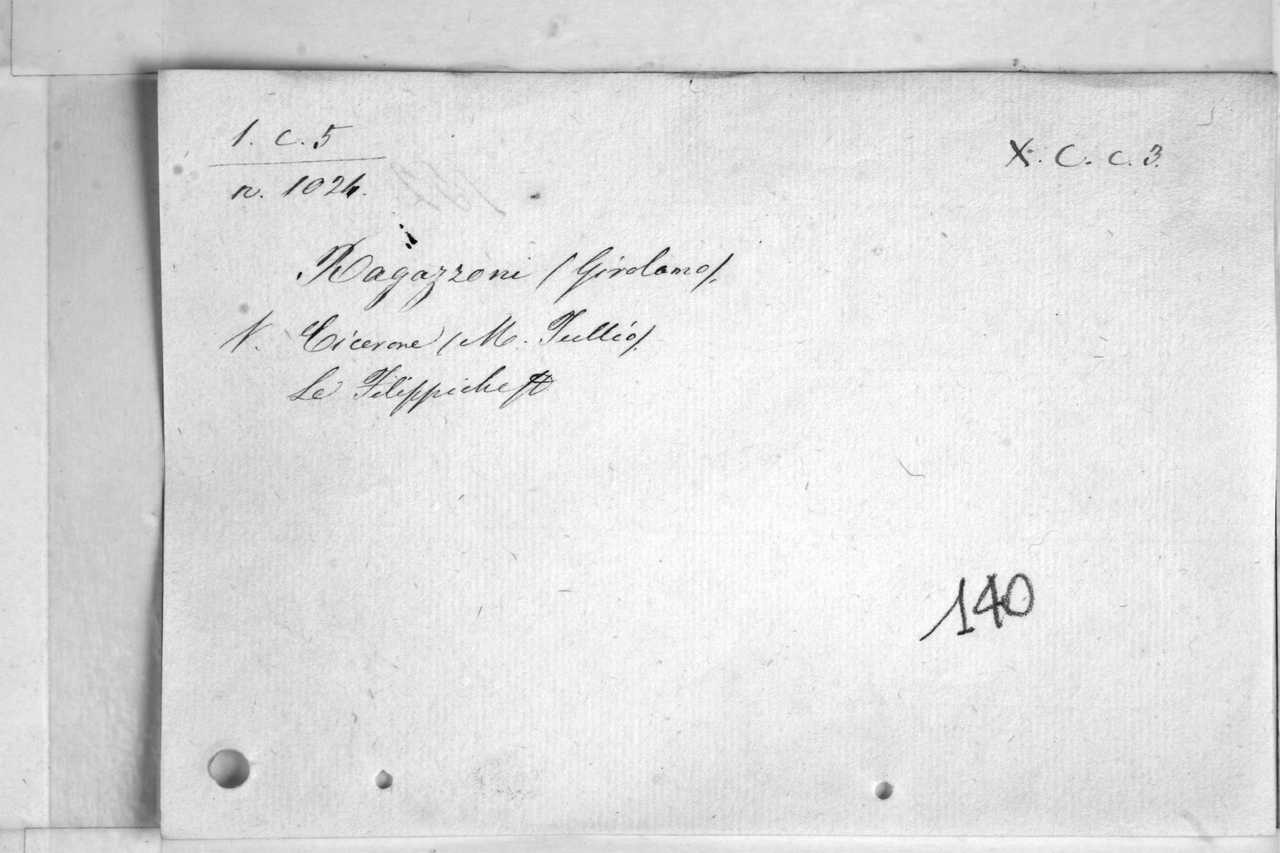 1. C. 5
X. C. c. 3.
n. 1024.
Ragazzoni (Girolamo).
V. Cicerone (M. Tullio).
Le Filippiche
140